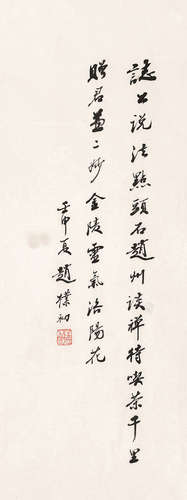 誌公说法點頭石趙州談禪特喫茶千里
贈君蓋二妙金陵靈氣洛陽花
壬申夏趙樸初